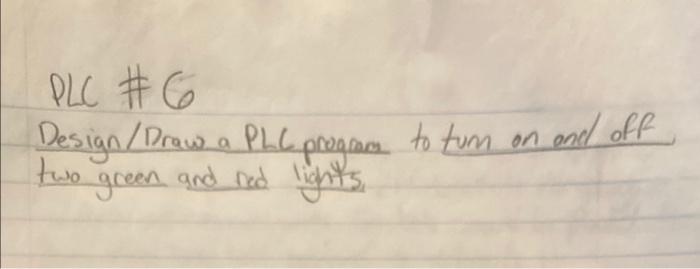 PLC # 6
Design/Draw a PLC program to turn on and off
two green and red lights.